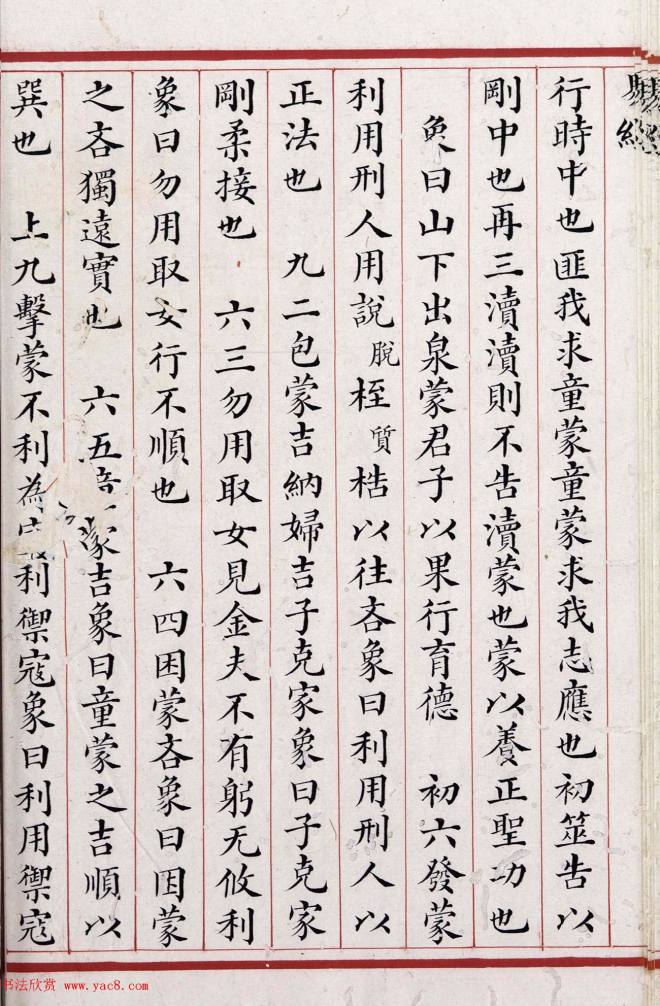 易經
行時中也匪我求童蒙童蒙求我志應也初筮告以
剛中也再三瀆瀆則不告瀆蒙也蒙以養正聖功也
象曰山下出泉蒙君子以果行育德　初六發蒙
利用刑人用說脫桎質梏以往吝象曰利用刑人以
正法也　九二包蒙吉納婦吉子克家象曰子克家
剛柔接也　六三勿用取女見金夫不有躬无攸利
象曰勿用取女行不順也　六四困蒙吝象曰困蒙
之吝獨遠實也　六五蒙吉象曰童蒙之吉順以
巽也　上九擊蒙不利為利禦寇象曰利用禦寇
书法欣赏 www.yac8.com